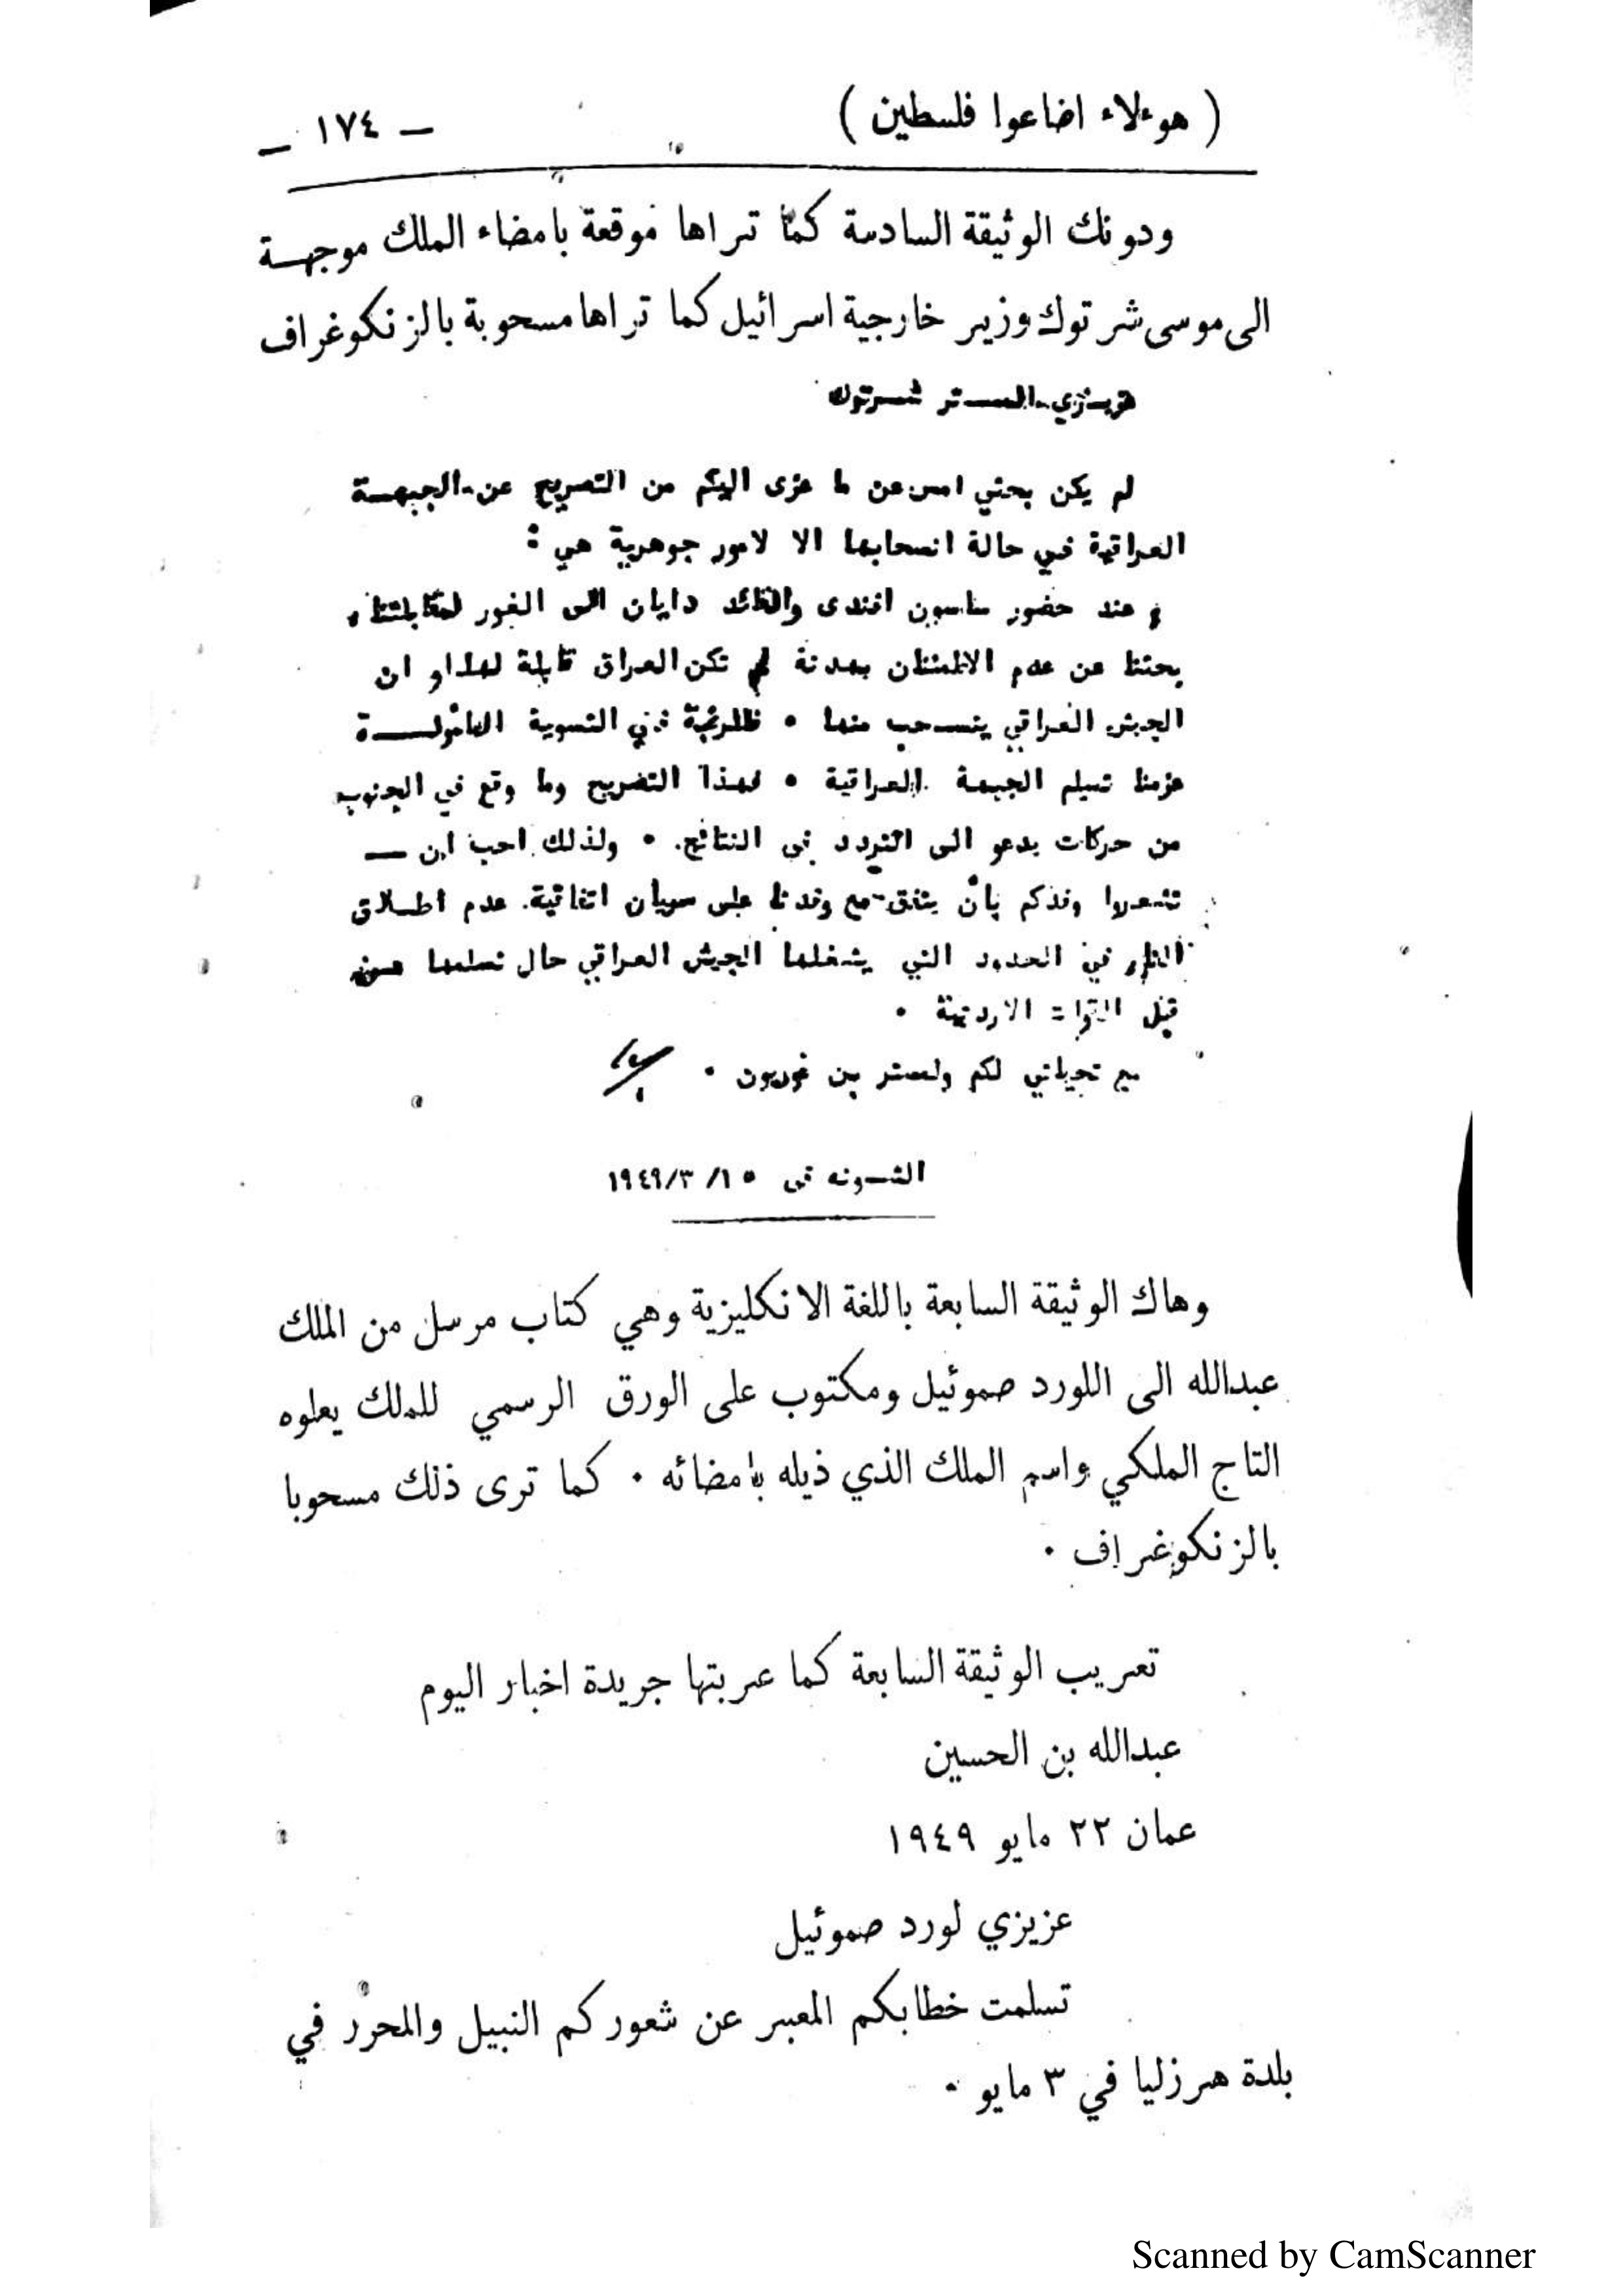 ( هوءلاء اضاعوا فلسطين )
— ١٧٤ —
ودونك الوثيقة السادسة كما تراها موقعة بامضاء الملك موجهة
الى موسى شرتوك وزير خارجية اسرائيل كما تراها مسحوبة بالزنكوغراف
عزيزي المستر شرتوك
لم يكن بحثي امس عن ما عزى اليكم من التصريح عن الجبهة
العراقية في حالة انسحابها الا لامور جوهرية هي :
عند حضور ساسون افندى والقائد دايان الى الغور لمقابلتنا
بحثنا عن عدم الاطمئنان بهدنة لم تكن العراق قابلة لها او ان
الجيش العراقي ينسحب منها • فللرغبة في التسوية المأمولة
عزمنا تسلم الجبهة العراقية • فهذا التصريح وما وقع في الجنوب
من حركات يدعو الى التردد في النتائج • ولذلك احب ان —
تشعروا وفدكم بأن يتفق مع وفدنا على سريان اتفاقية عدم اطلاق
النار في الحدود التي يشغلها الجيش العراقي حال تسلمها من
قبل القوات الاردنية •
مع تحياتي لكم ولمستر بن غوريون •
الشونه في ١٩٤٩/٣/١٥
وهاك الوثيقة السابعة باللغة الانكليزية وهي كتاب مرسل من الملك
عبدالله الى اللورد صموئيل ومكتوب على الورق الرسمي للملك يعلوه
التاج الملكي واسم الملك الذي ذيله بامضائه • كما ترى ذلك مسحوبا
بالزنكوغراف •
تعريب الوثيقة السابعة كما عربتها جريدة اخبار اليوم
عبدالله بن الحسين
عمان ٢٢ مايو ١٩٤٩
عزيزي لورد صموئيل
تسلمت خطابكم المعبر عن شعوركم النبيل والمحرر في
بلدة هرزليا في ٣ مايو •
Scanned by CamScanner